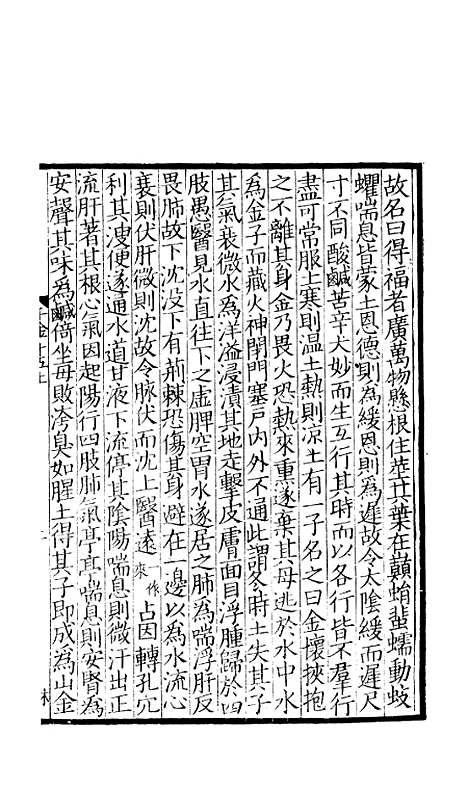 故名曰得福者廣萬物懸根住莖其葉在巔蛸蜚蠕動蚑
蠷喘息皆蒙土恩德則為緩恩則為遲故令太陰緩而遲尺
寸不同酸鹹苦辛大妙而生互行其時而以各行皆不羣行
盡可常服土寒則温土熱則凉土有一子名之曰金懷挾抱
之不離其身金乃畏火恐熱來熏遂棄其母逃於水中水
為金子而藏火神閉門塞戶內外不通此謂冬時土失其子
其氣衰微水為洋溢浸漬其地走擊皮膚面目浮腫歸於四
肢愚醫見水直往下之虛脾空胃水遂居之肺為喘浮肝反
畏肺故下沈没下有荊棘恐傷其身避在一邊以為水流心
衰則伏肝微則沈故令脉伏而沈上醫遠一作來占因轉孔穴
利其溲便遂通水道甘液下流停其陰陽喘息則微汗出正
流肝著其根心氣因起陽行四肢肺氣亭亭喘息則安腎為
安聲其味為鹹倚坐母敗洿臭如腥土得其子即成為山金
千金十五上